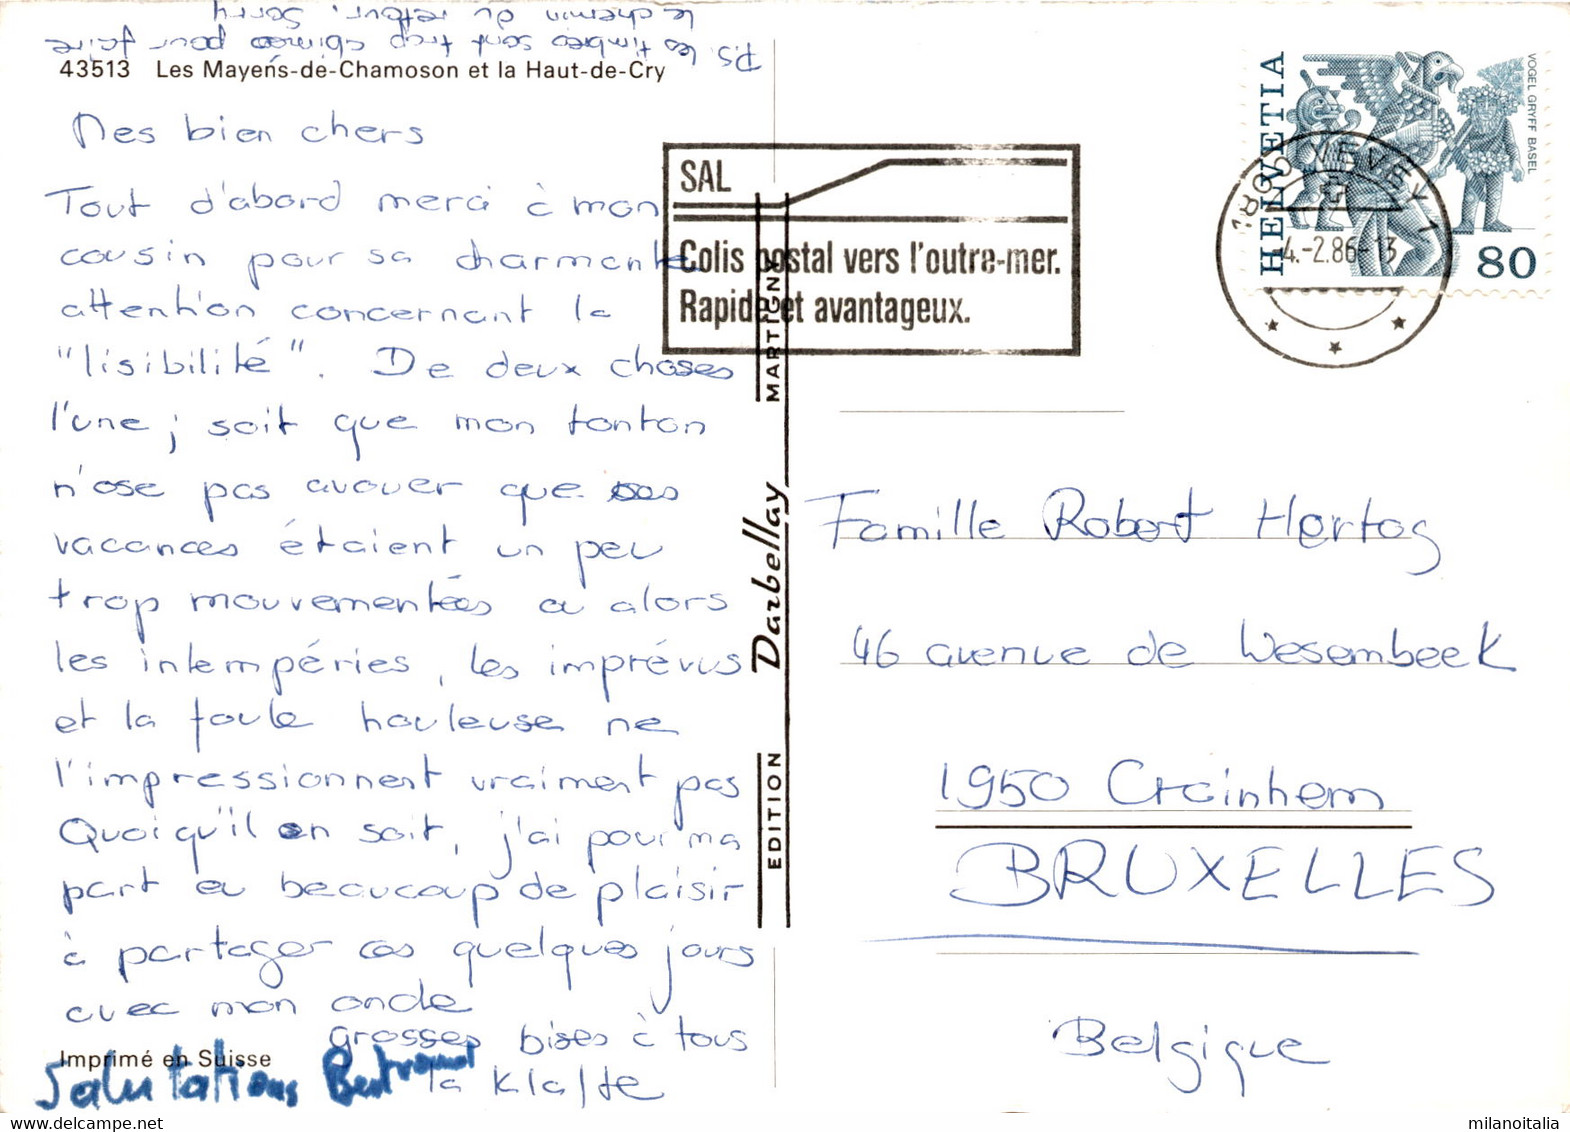 P.S. les timbres sont trop abimés pour faire
le chemin du retour, sorry
43513 Les Mayens-de-Chamoson et la Haut-de-Cry
Mes bien chers
Tout d'abord merci à mon
cousin pour sa charmante
attention concernant la
"lisibilité". De deux choses
l'une; soit que mon tonton
n'ose pas avouer que ses
vacances étaient un peu
trop mouvementées ou alors
les intempéries, les imprévus
et la foule houleuse ne
l'impressionnent vraiment pas
Quoiqu'il en soit, j'ai pour ma
part eu beaucoup de plaisir
à partager ces quelques jours
avec mon oncle
grosses bises à tous
la
Imprimé en Suisse
Salutations Bertrand
EDITION Darbellay MARTIGNY
SAL
Colis postal vers l'outre-mer.
Rapide et avantageux.
HELVETIA
VOGEL GRYFF BASEL
80
1800 VEVEY 1
4.-2.86-13
Famille Robert Hertog
46 avenue de Wesembeek
1950 Crainhem
BRUXELLES
Belgique
milanoitalia